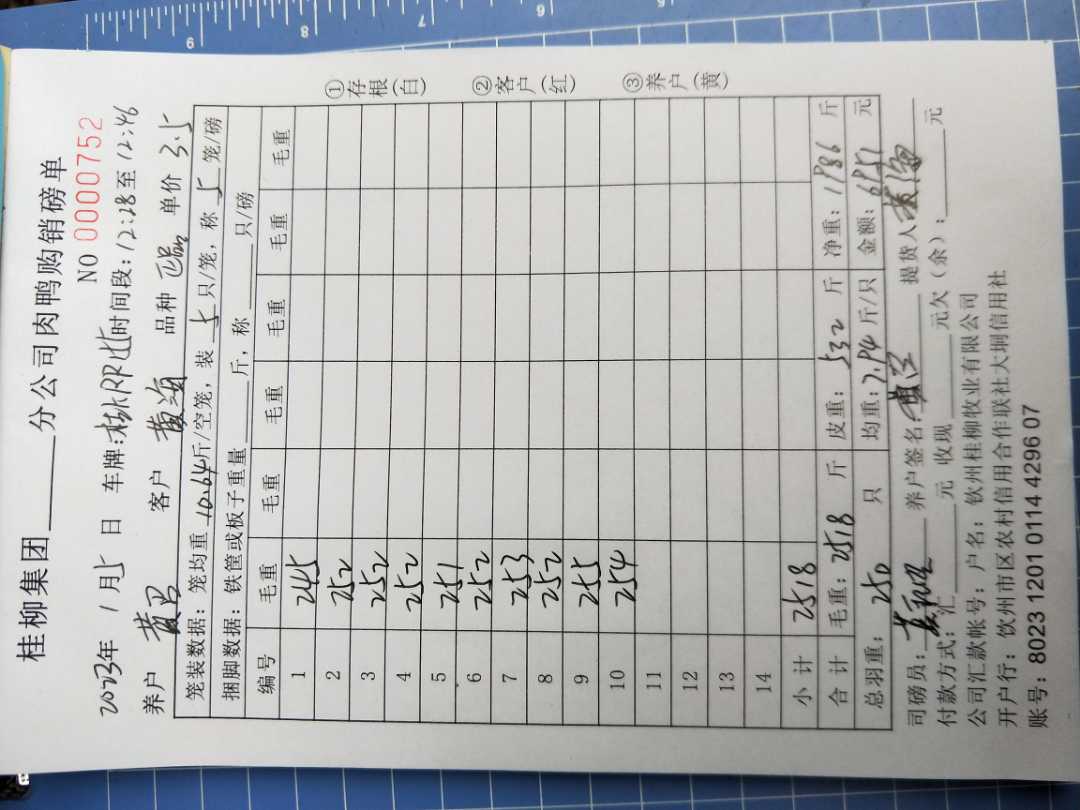 桂柳集团____分公司肉鸭购销磅单
NO 0000752
2023年 1月5日 车牌: 时间段:12:28至12:46
养户 黄 客户 黄海 品种 单价 3.5
笼装数据:笼均重 10.64斤/空笼,装 5 只/笼,称 5 笼/磅
捆脚数据:铁筐或板子重量____斤,称____只/磅
编号 毛重 毛重 毛重 毛重 毛重 毛重
1 245
2 252
3 252
4 252
5 251
6 252
7 253
8 252
9 255
10 254
11
12
13
14
小计 2518
合计 毛重:2518 斤 皮重:532 斤 净重:1986 斤
总羽重:250 只 均重:7.94 斤/只 金额:6951 元
司磅员: 养户签名:黄 提货人 黄海
付款方式:汇____元 收现____元欠(余):____元
公司汇款帐号:户名:钦州桂柳牧业有限公司
开户行:钦州市区农村信用合作联社大垌信用社
账号:8023 1201 0114 4296 07
①存根(白)
②客户(红)
③养户(黄)
9
8
7
6
5